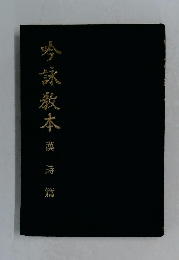 吟詠教本
漢詩篇